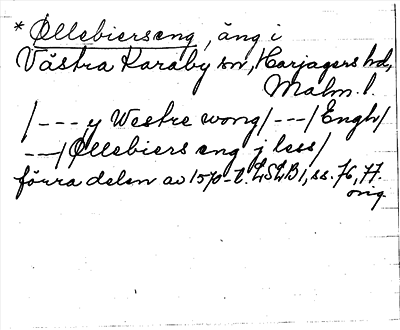 * Øllebierseng, äng i
Västra Karaby sn, Harjagers hd,
Malm. l.
/--- y Westre wong/---/Engh/
---/Øllebiers eng j less/
förra delen av 1570-t. LSLB 1, ss. 76, 77.
orig.